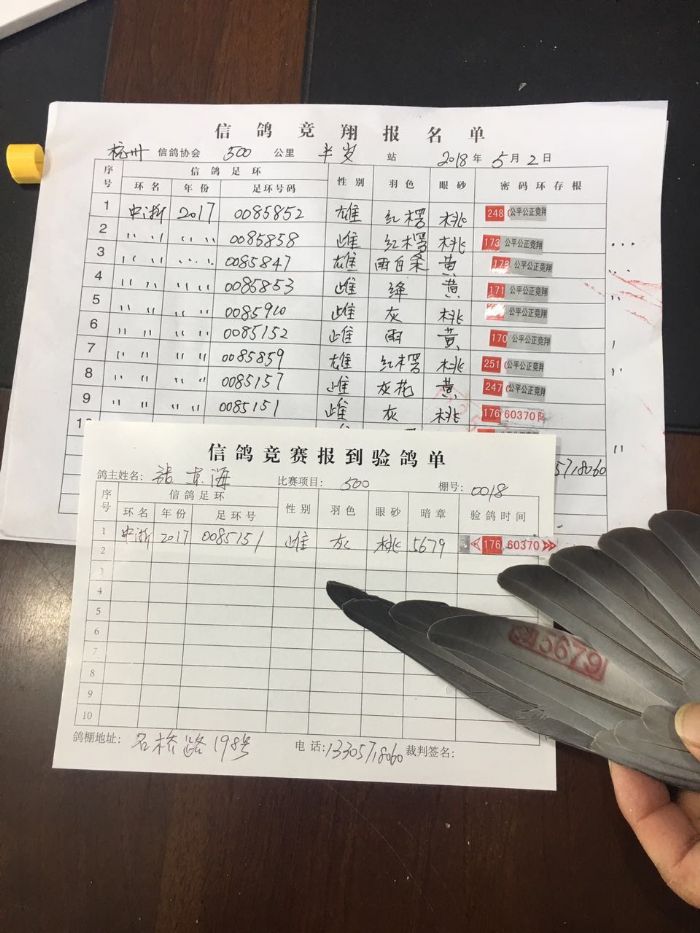 信鸽竞翔报名单
杭州 信鸽协会 500 公里 半岁 站 2018年5月2日
序号 信鸽足环 性别 羽色 眼砂 密码环存根
环名 年份 足环号码
1 中浙 2017 0085852 雄 红楞 桃 248 公平公正竞翔
2 〃 〃 〃 〃 0085858 雌 红楞 桃 173 公平公正竞翔
3 〃 〃 〃 〃 0085847 雄 雨白条 黄 178 公平公正竞翔
4 〃 〃 〃 〃 0085853 雌 绛 黄 171 公平公正竞翔
5 〃 〃 〃 〃 0085910 雌 灰 桃 公平公正竞翔
6 〃 〃 〃 〃 0085152 雌 雨 黄 170 公平公正竞翔
7 〃 〃 〃 〃 0085859 雄 红楞 桃 251 公平公正竞翔
8 〃 〃 〃 〃 0085157 雌 灰花 黄 247 公平公正竞翔
9 〃 〃 〃 〃 0085151 雌 灰 桃 176 60370
5718060
信鸽竞赛报到验鸽单
鸽主姓名: 张京海 比赛项目: 500 棚号: 0018
序号 信鸽足环 性别 羽色 眼砂 暗章 验鸽时间
环名 年份 足环号
1 中浙 2017 0085151 雌 灰 桃 5679 176 60370
2
3
4
5
6
7
8
9
10
鸽棚地址: 石桥路198号 电话: 13305718060 裁判签名:
5679